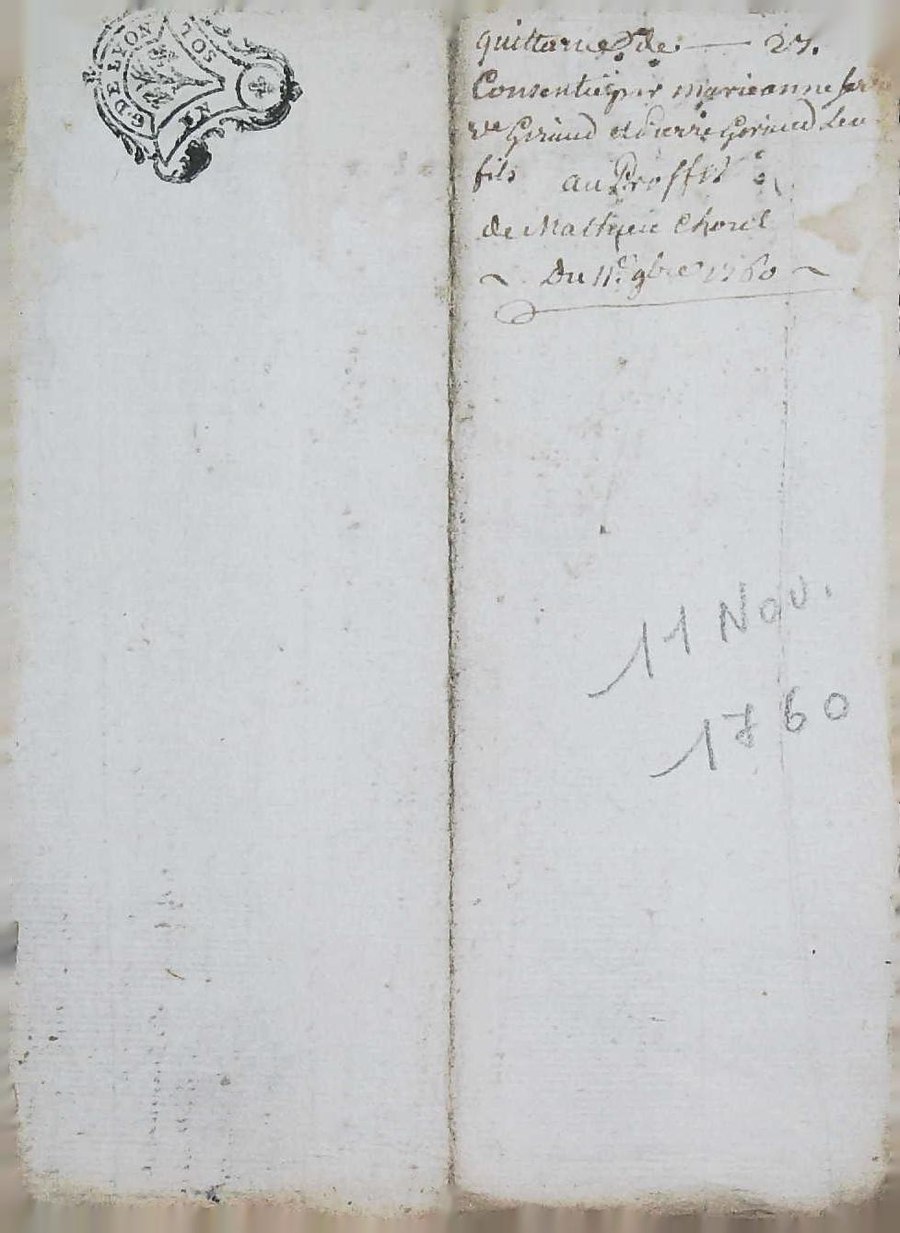 G DE LYON
SOL
quittance de 27.
Consentie par marieanne
ve Giraud et Pierre Giraud Leu
fils au Proffit
de Mathieu Chorel
Du 11e. 9bre 1760
11 Nov.
1760